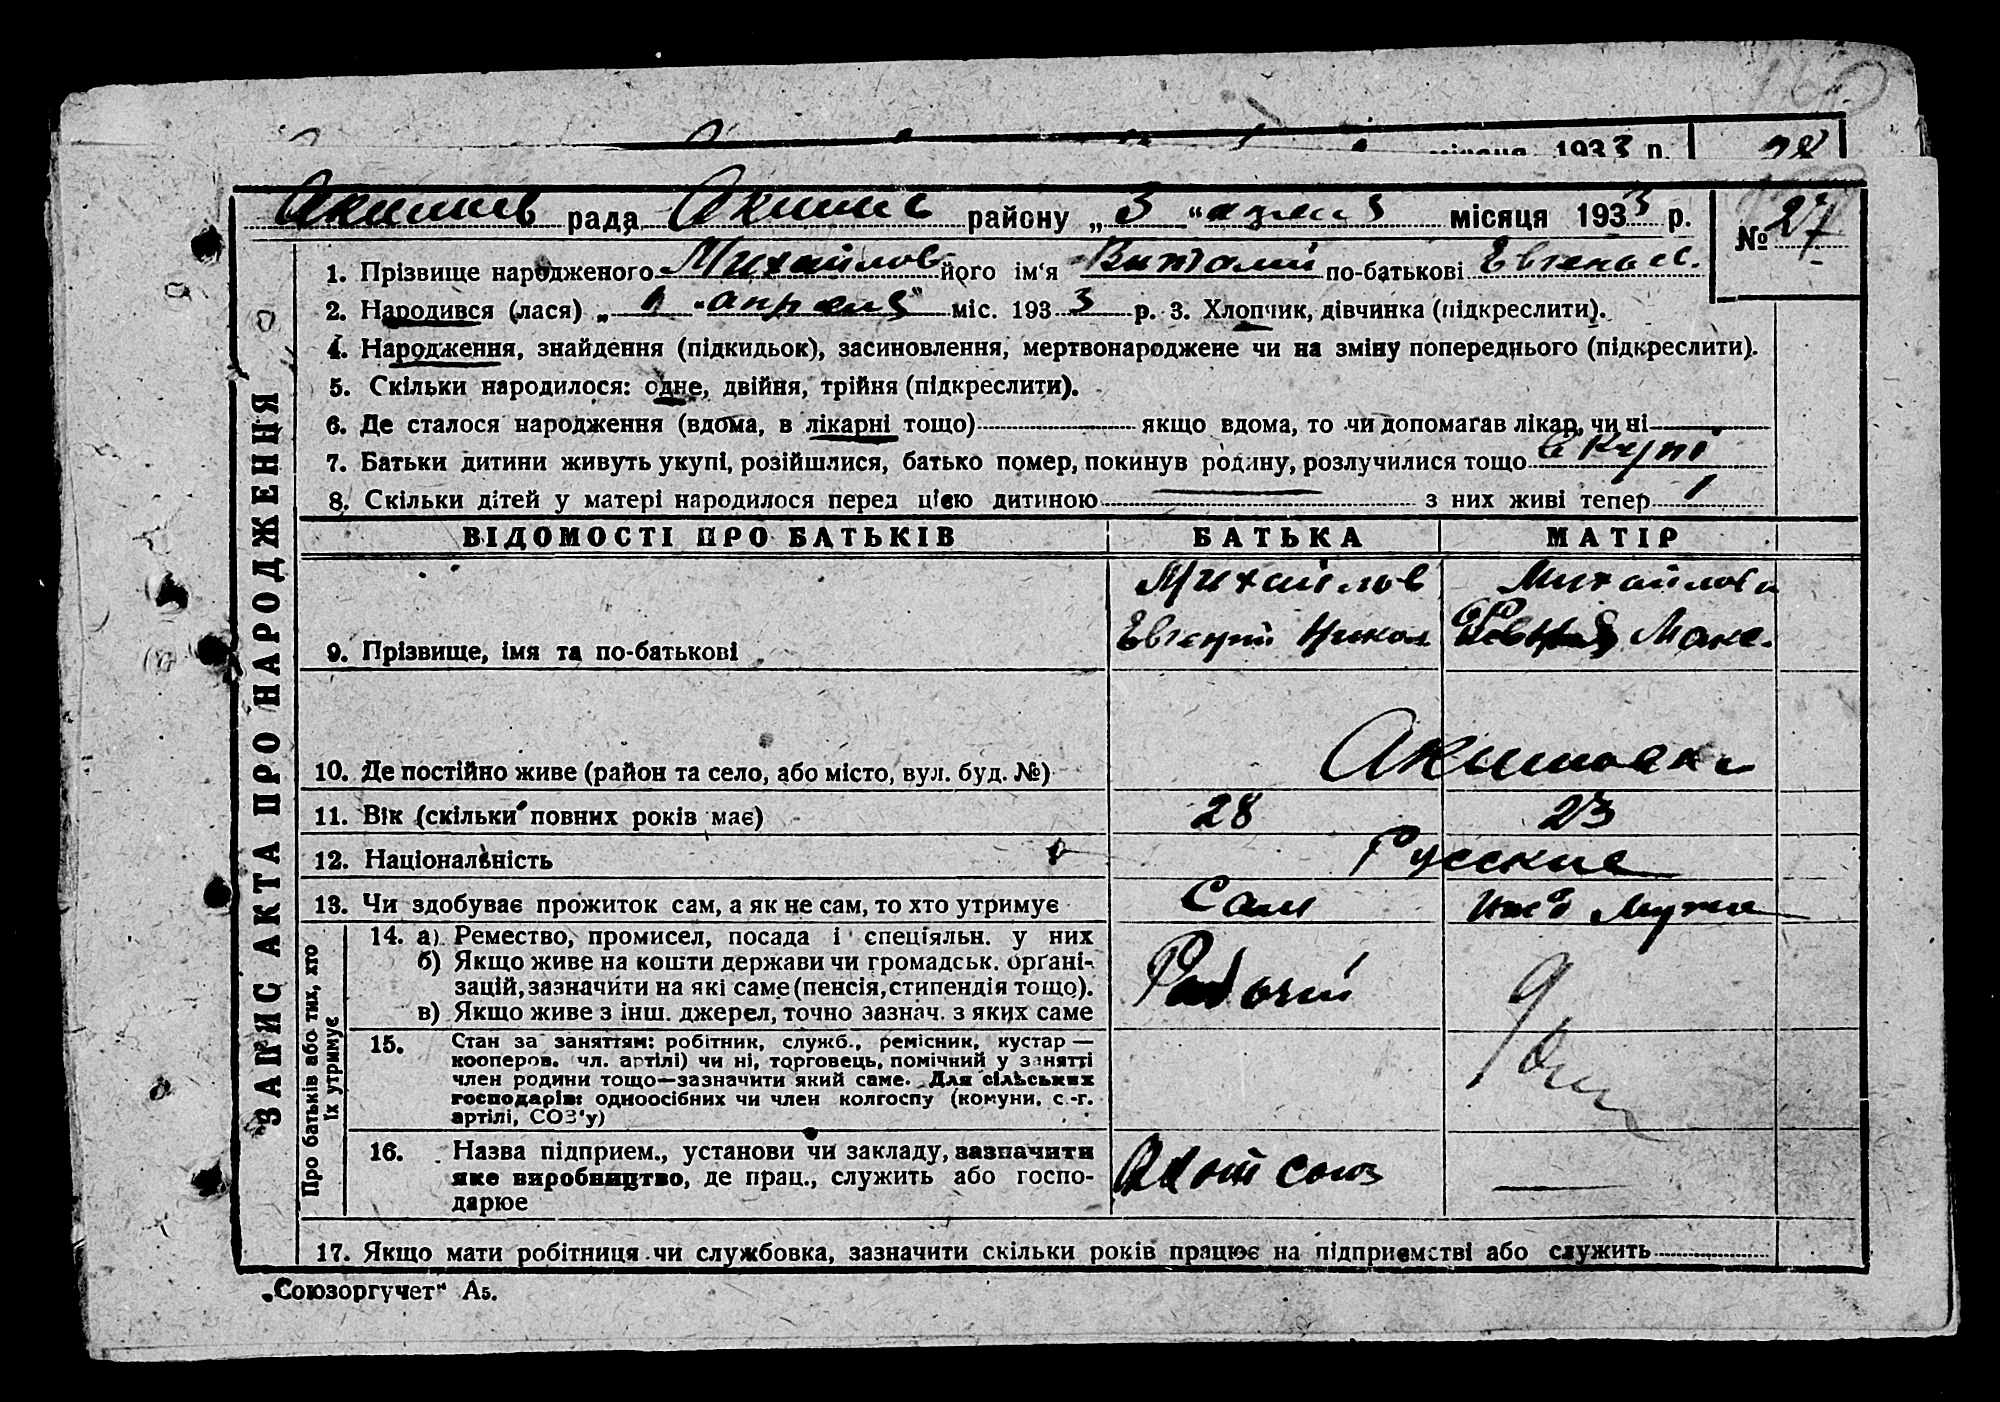 1933 р.
28
Акимів рада Акимів району „3 “ апреля місяця 1933 р.
№ 27
ЗАПИС АКТА ПРО НАРОДЖЕННЯ
1. Прізвище народженого Михайлов його ім'я Виталий по-батькові
2. Народився (лася) „ 1 " апреля міс. 1933 р. 3. Хлопчик, дівчинка (підкреслити).
4. Народження, знайдення (підкидьок), засиновлення, мертвонароджене чи на зміну попереднього (підкреслити).
5. Скільки народилося: одне, двійня, трійня (підкреслити).
6. Де сталося народження (вдома, в лікарні тощо) якщо вдома, то чи допомагав лікар, чи ні
7. Батьки дитини живуть укупі, розійшлися, батько помер, покинув родину, розлучилися тощо вкупі
8. Скільки дітей у матері народилося перед цією дитиною — з них живі тепер 1
ВІДОМОСТІ ПРО БАТЬКІВ БАТЬКА МАТІР
Михайлов Михайлова
9. Прізвище, імя та по-батькові Евгений Никол Макс.
10. Де постійно живе (район та село, або місто, вул. буд. №) Акимовка
11. Вік (скільки повних років має) 28 23
12. Національність Русские
13. Чи здобуває прожиток сам, а як не сам, то хто утримує Сам мужа
Про батьків або тих, хто їх утримує
14. а) Ремество, промисел, посада і спеціяльн. у них
б) Якщо живе на кошти держави чи громадськ. органі-
зацій, зазначити на які саме (пенсія, стипендія тощо).
в) Якщо живе з інш. джерел, точно зазнач. з яких саме
Рабочий
15. Стан за заняттям: робітник, служб., ремісник, кустар —
кооперов. чл. артілі) чи ні, торговець, помічний у занятті
член родини тощо—зазначити який саме. Для сільських
господарів: одноосібних чи член колгоспу (комуни, с.-г.
артілі, СОЗ'у)
16. Назва підприєм., установи чи закладу, зазначити
яке виробництво, де прац., служить або госпо-
дарює
союз
17. Якщо мати робітниця чи службовка, зазначити скільки років працює на підприємстві або служить
„Союзоргучет" А5.